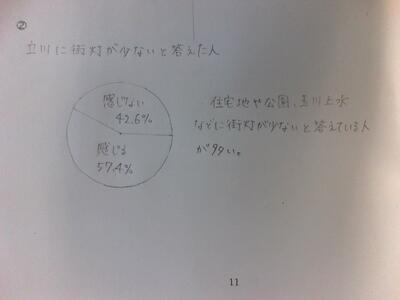 ②
立川に街灯が少ないと答えた人
感じない
42.6%
感じる
57.4%
・住宅地や公園、玉川上水
などに街灯が少ないと答えている人
が多い。
11